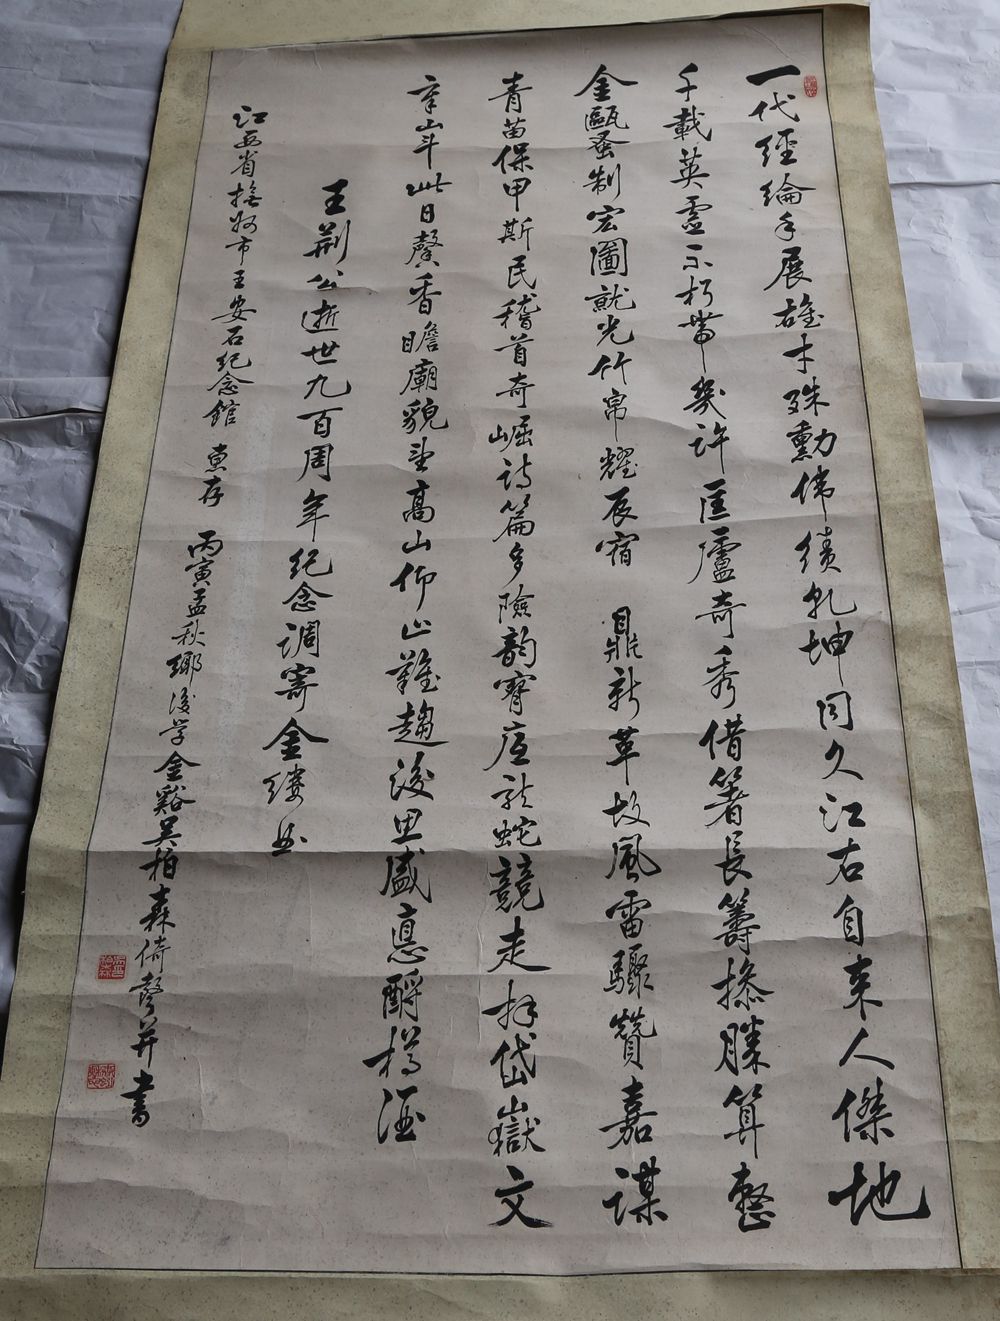 一代經綸手展雄才殊勳偉績乾坤同久江右自來人傑地
千載英靈不朽帶幾許匡廬奇秀借箸長籌操勝算整
金甌蚤制宏圖就光竹帛耀辰宿鼎新革故風雷驟贊嘉謀
青苗保甲斯民稽首奇崛詩篇多險韵寶座龍蛇競走拜岱嶽文
章山斗此日馨香瞻廟貌望高山仰止難趨後思盛惪酹樽酒
王荆公逝世九百周年紀念調寄金縷曲
江西省撫州市王安石紀念館 惠存 丙寅孟秋鄉後学金谿吴柏森倚聲并書